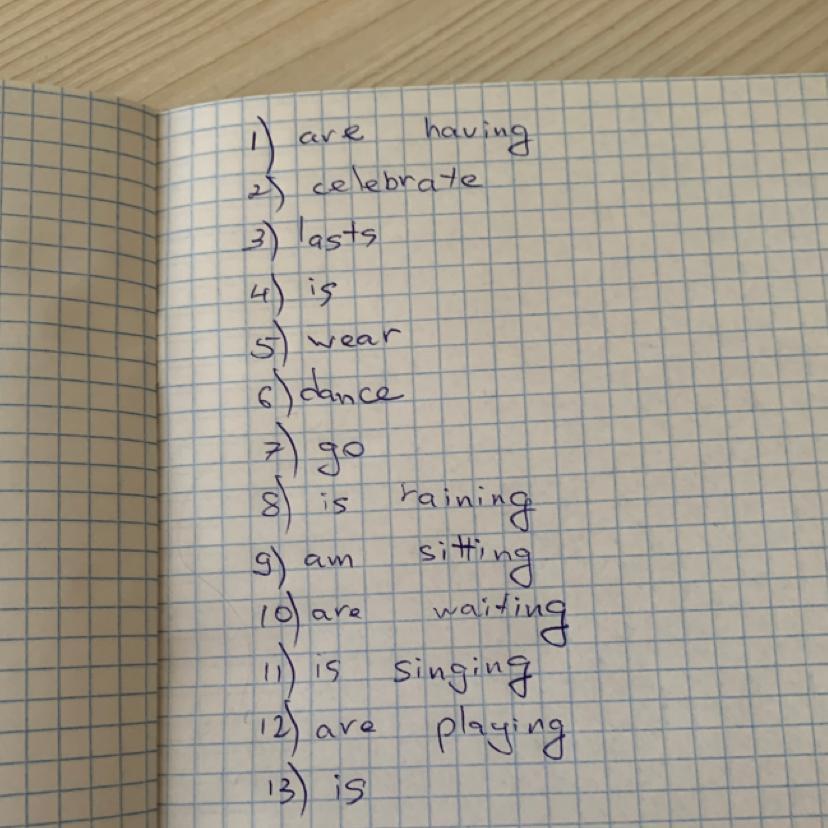 1) are having
2) celebrate
3) lasts
4) is
5) wear
6) dance
7) go
8) is raining
9) am sitting
10) are waiting
11) is singing
12) are playing
13) is